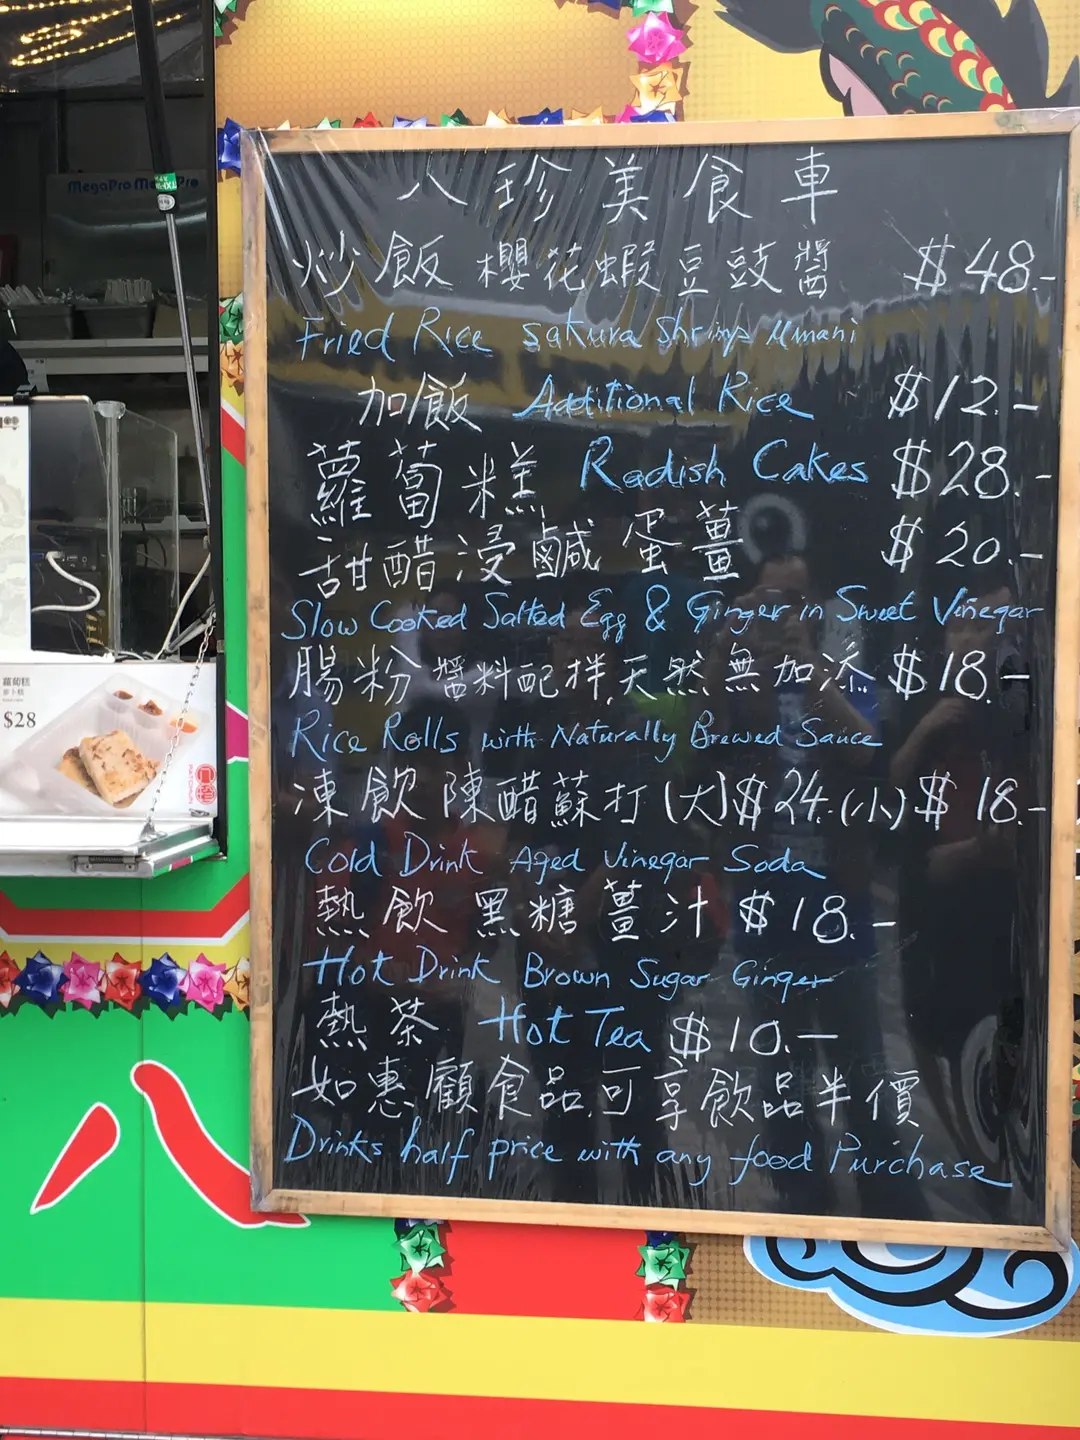 MegaPro
八珍美食車
炒飯 櫻花蝦豆豉醬 $48.-
Fried Rice Sakura Shrimps Umami
加飯 Additional Rice $12.-
蘿蔔糕 Radish Cakes $28.-
甜醋浸鹹蛋薑 $20.-
Slow Cooked Salted Egg & Ginger in Sweet Vinegar
腸粉 醬料配拌,天然無加添 $18.-
Rice Rolls with Naturally Brewed Sauce
凍飲 陳醋蘇打 (大)$24.- (小)$18.-
Cold Drink Aged Vinegar Soda
熱飲 黑糖薑汁 $18.-
Hot Drink Brown Sugar Ginger
熱茶 Hot Tea $10.-
如惠顧食品,可享飲品半價
Drinks half price with any food Purchase
蘿蔔糕
萝卜糕
$28
八